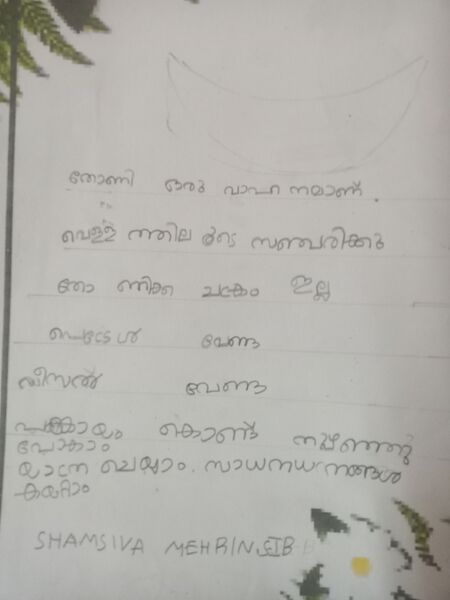 തോണി ഒരു വാഹനമാണ്.
വെള്ളത്തിലൂടെ സഞ്ചരിക്കു
തോണിക്ക് ചക്രം ഇല്ല
പെട്രോൾ വേണ്ട
ഡീസൽ വേണ്ട
കൊണ്ട് തുഴഞ്ഞു
പോകാം
യാത്ര ചെയ്യാം. സാധനങ്ങൾ
കയറ്റാം
SHAMSIVA MEHRIN